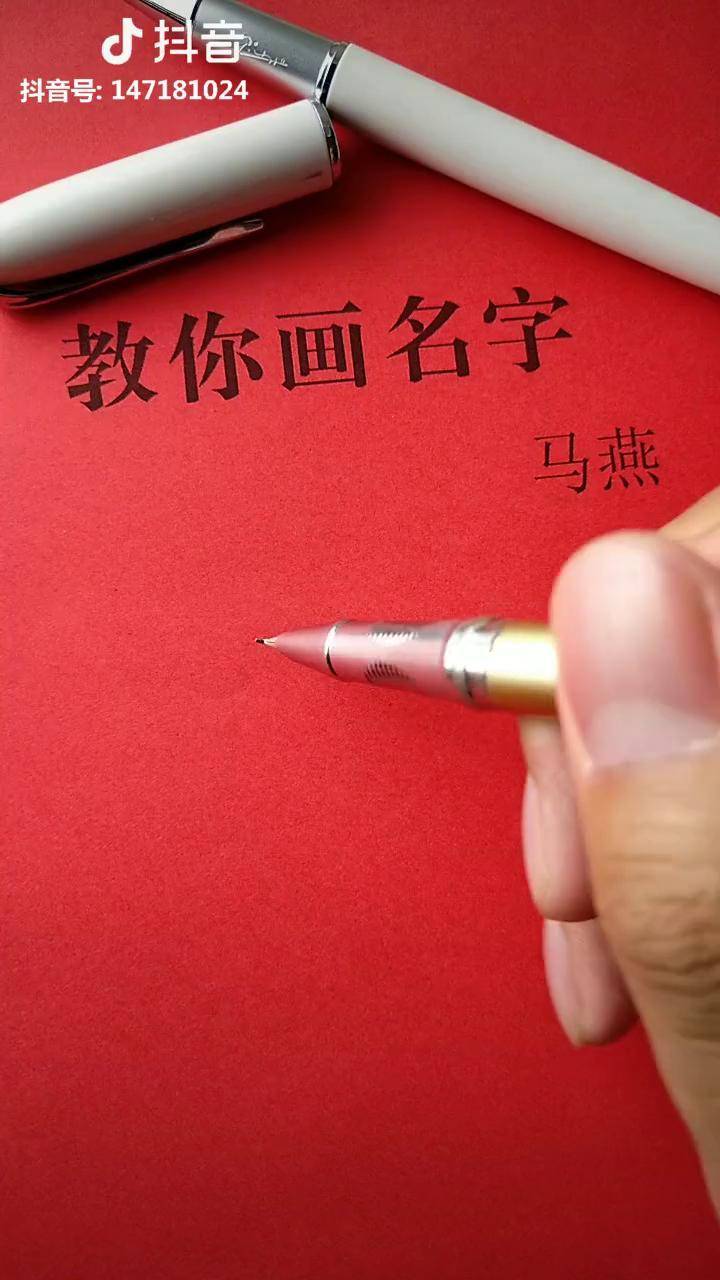 抖音
抖音号: 147181024
教你画名字
马燕